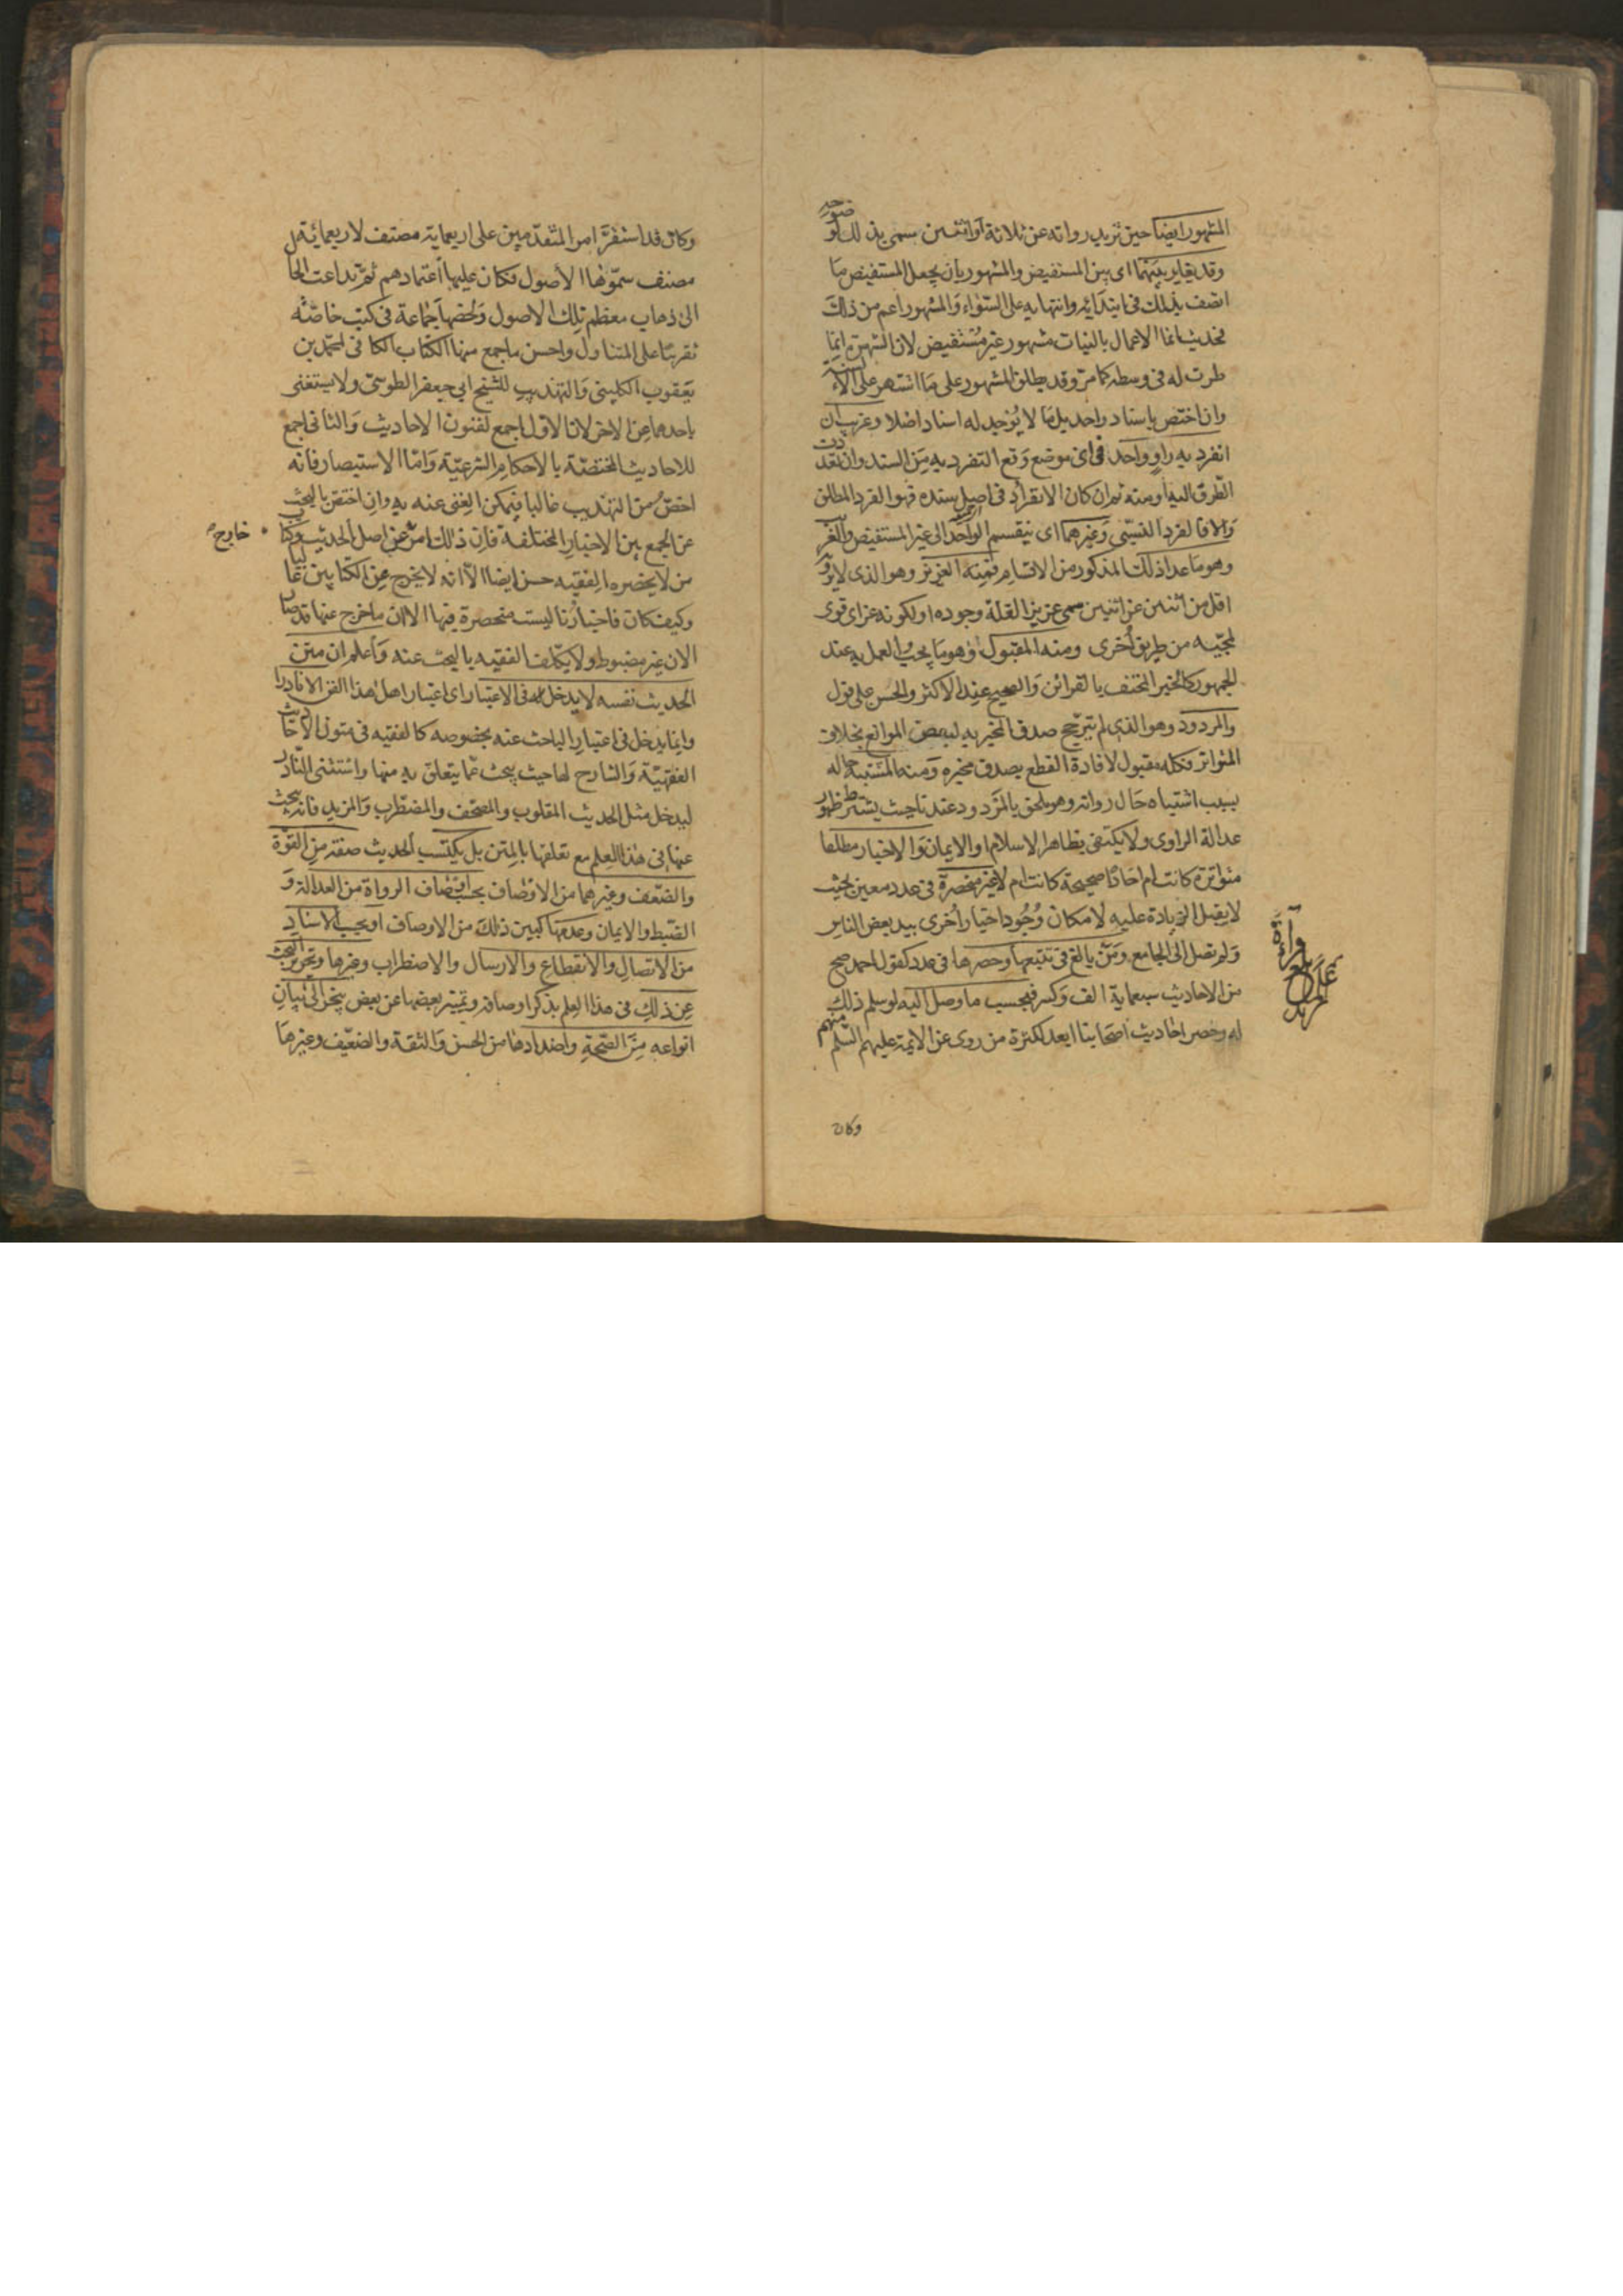 المشهور ايضا حين تزيد رواته عن ثلاثة او اثنين سمى بذلك لوضوحه
وقد يغاير بينهما اى بين المستفيض والمشهور بان يجعل المستفيض ما
اتصف بذلك فى ابتدائه وانتهايه على السواء والمشهور اعم من ذلك
فحديث انما الاعمال بالنيات مشهور غير مستفيض لان الشهرة انما
طرت له فى وسطه كما مر وقد يطلق المشهور على ما اشتهر على الالسنة
وان اختص باسناد واحد بل ما لا يوجد له اسناد اصلا وغريب ان
انفرد به راو واحد فى اى موضع وقع التفرد به من السند وان تعددت
الطرق اليه او منه ثم ان كان الانفراد فى اصل سنده فهو الفرد المطلق
والا فالفرد النسبى وغيرهما اى ينقسم الواحد الى غير المستفيض والغريب
وهو ما عدا ذلك المذكور من الاقسام فمنه العزيز وهو الذى لا يرويه
اقل من اثنين عن اثنين سمى عزيزا لقلة وجوده او لكونه عز اى قوى
لمجيئه من طريق اخرى ومنه المقبول وهو ما يجب العمل به عند
الجمهور كالخبر المحتف بالقرائن والصحيح عند الاكثر والحسن على قول
والمردود وهو الذى لم يترجح صدق المخبر به لبعض الموانع بخلاف
المتواتر فكله مقبول لافادة القطع بصدق مخبره ومنه المشتبه حاله
بسبب اشتباه حال رواته وهو ملحق بالمردود عندنا حيث يشترط ظهور
عدالة الراوى ولا يكتفى بظاهر الاسلام او الايمان والاخبار مطلقا
متواترة كانت ام احادا صحيحة كانت ام لا غير منحصرة فى عدد معين بحيث
لا يقبل الزيادة عليه لامكان وجود اخبار اخرى بيد بعض الناس
ولم تصل الى الجامع ومن بالغ فى تتبعها وحصرها فى عدد كقول احمد صح
من الاحاديث سبعماية الف وكسر فبحسب ما وصل اليه لو سلم ذلك
له وحصر احاديث اصحابنا ابعد لكثرة من روى عن الائمة عليهم السلم منهم
وكان
وكان قد استقر امر المتقدمين على اربعماية مصنف لاربعمائة
مصنف سموها الاصول فكان عليها اعتمادهم ثم تداعت الحال
الى ذهاب معظم تلك الاصول ولخصها جماعة فى كتب خاصة
تقريبا على المتناول واحسن ما جمع منها الكتاب الكافى لمحمد بن
يعقوب الكلينى والتهذيب للشيخ ابى جعفر الطوسى ولا يستغنى
باحدهما عن الاخر لان الاول اجمع لفنون الاحاديث والثانى اجمع
للاحاديث المختصة بالاحكام الشرعية واما الاستبصار فانه
اخص من التهذيب غالبا فيمكن الغنى عنه به وان اختص بالبحث
عن الجمع بين الاخبار المختلفة فان ذلك امر عن اصل الحديث وكتاب
خارج
من لا يحضره الفقيه حسن ايضا الا انه لا يخرج عن الكتابين غالبا
وكيف كان فاخبارنا ليست منحصرة فيها الا ان ما خرج عنها قد صار
الان غير مضبوط ولا يكلف الفقيه بالبحث عنه واعلم ان متن
الحديث نفسه لا يدخل له فى الاعتبار اى اعتبار اهل هذا الفن الا نادرا
وانما يدخل فى اعتبار الباحث عنه بخصوصه كالفقيه فى متون الاحاديث
الفقهية والشارح لها حيث يبحث عما يتعلق به منها واستثنى النادر
ليدخل مثل الحديث المقلوب والمصحف والمضطرب والمزيد فانه يبحث
عنها فى هذا العلم مع تعلقها بالمتن بل يكتسب الحديث صفة من القوة
والضعف وغيرهما من الاوصاف بحسب اوصاف الرواة من العدالة و
الضبط والايمان وعدمها كبين ذلك من الاوصاف او بحسب الاسناد
من الاتصال والانقطاع والارسال والاضطراب وغيرها وتحرير البحث
عن ذلك فى هذا العلم بذكر اوصافه وتمييز بعضها عن بعض ينجر الى بيان
انواعه من الصحة واضدادها من الحسن والثقة والضعيف وغيرها